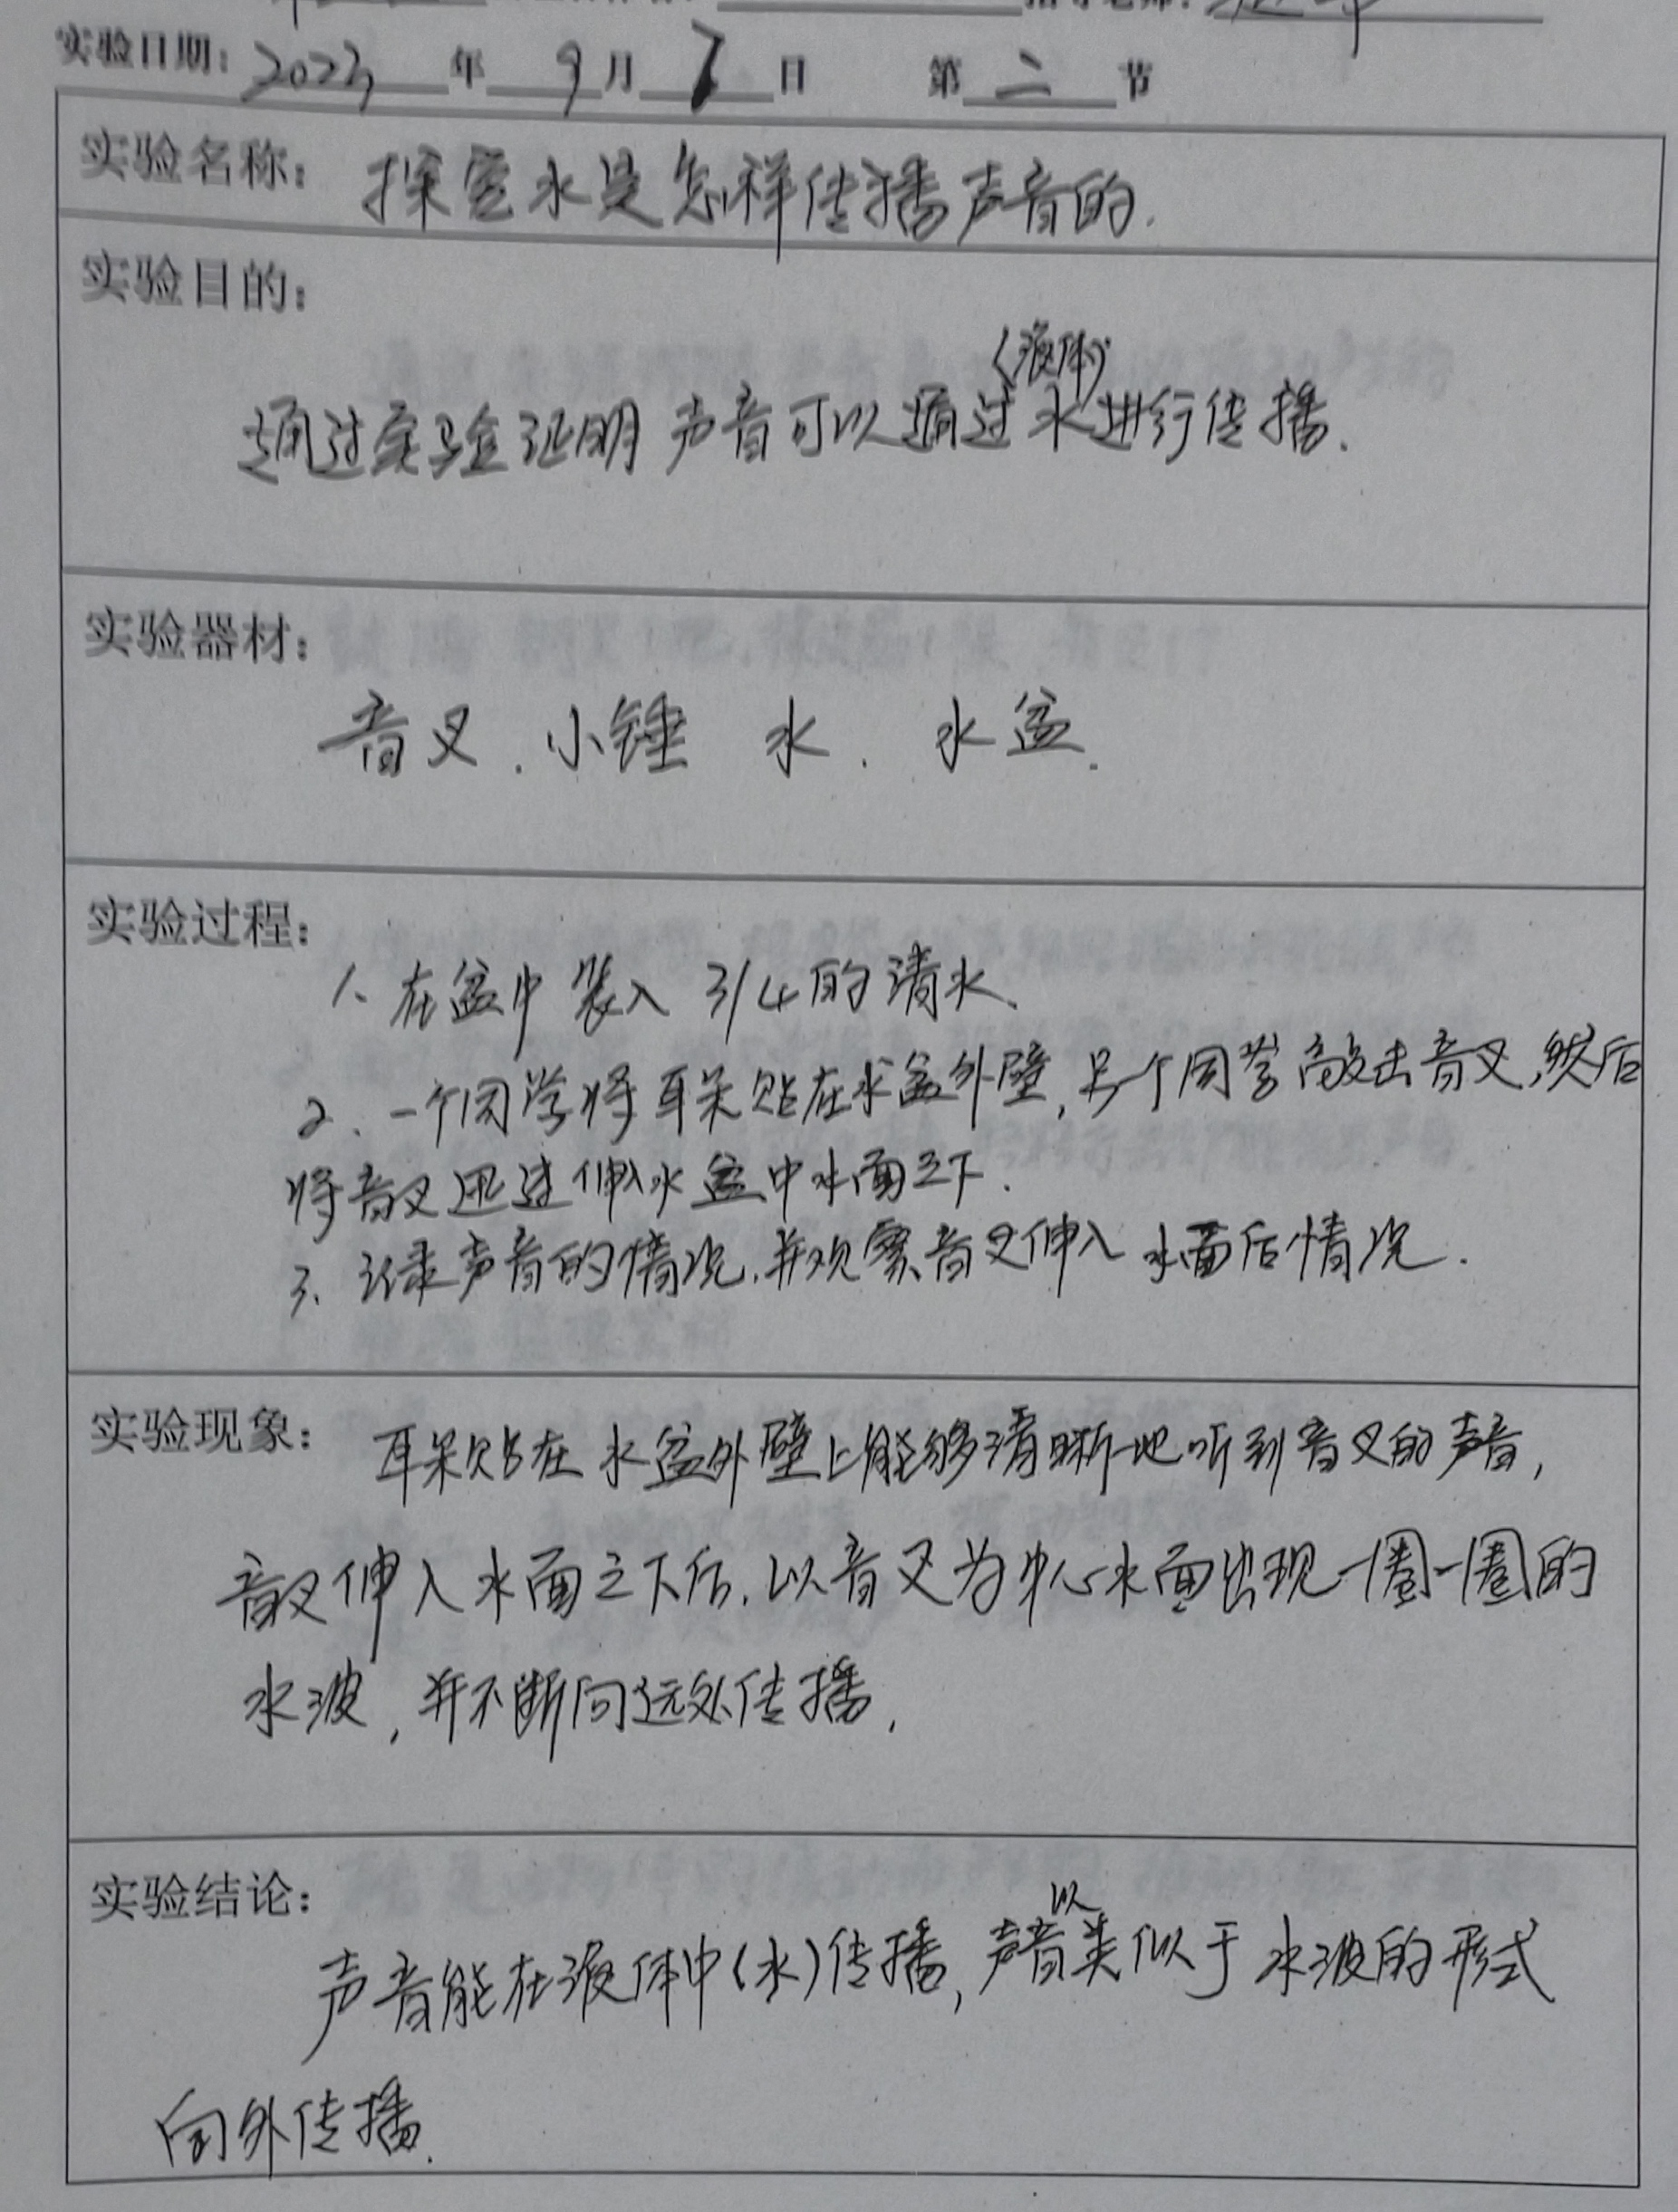 指导老师:
实验日期: 2023 年 9 月 7 日 第 二 节
实验名称: 探究水是怎样传播声音的.
实验目的:
(液体)
通过实验证明声音可以通过水进行传播.
实验器材:
音叉. 小锤 水. 水盆.
实验过程:
1、在盆中装入 3/4的清水.
2、一个同学将耳朵贴在水盆外壁, 另一个同学敲击音叉,然后
将音叉迅速伸入水盆中水面之下.
3、记录声音的情况,并观察音叉伸入水面后情况.
实验现象: 耳朵贴在水盆外壁上能够清晰地听到音叉的声音,
音叉伸入水面之下后,以音叉为中心水面出现一圈一圈的
水波,并不断向远处传播,
实验结论:
以
声音能在液体中(水)传播,声音类似于水波的形式
向外传播.